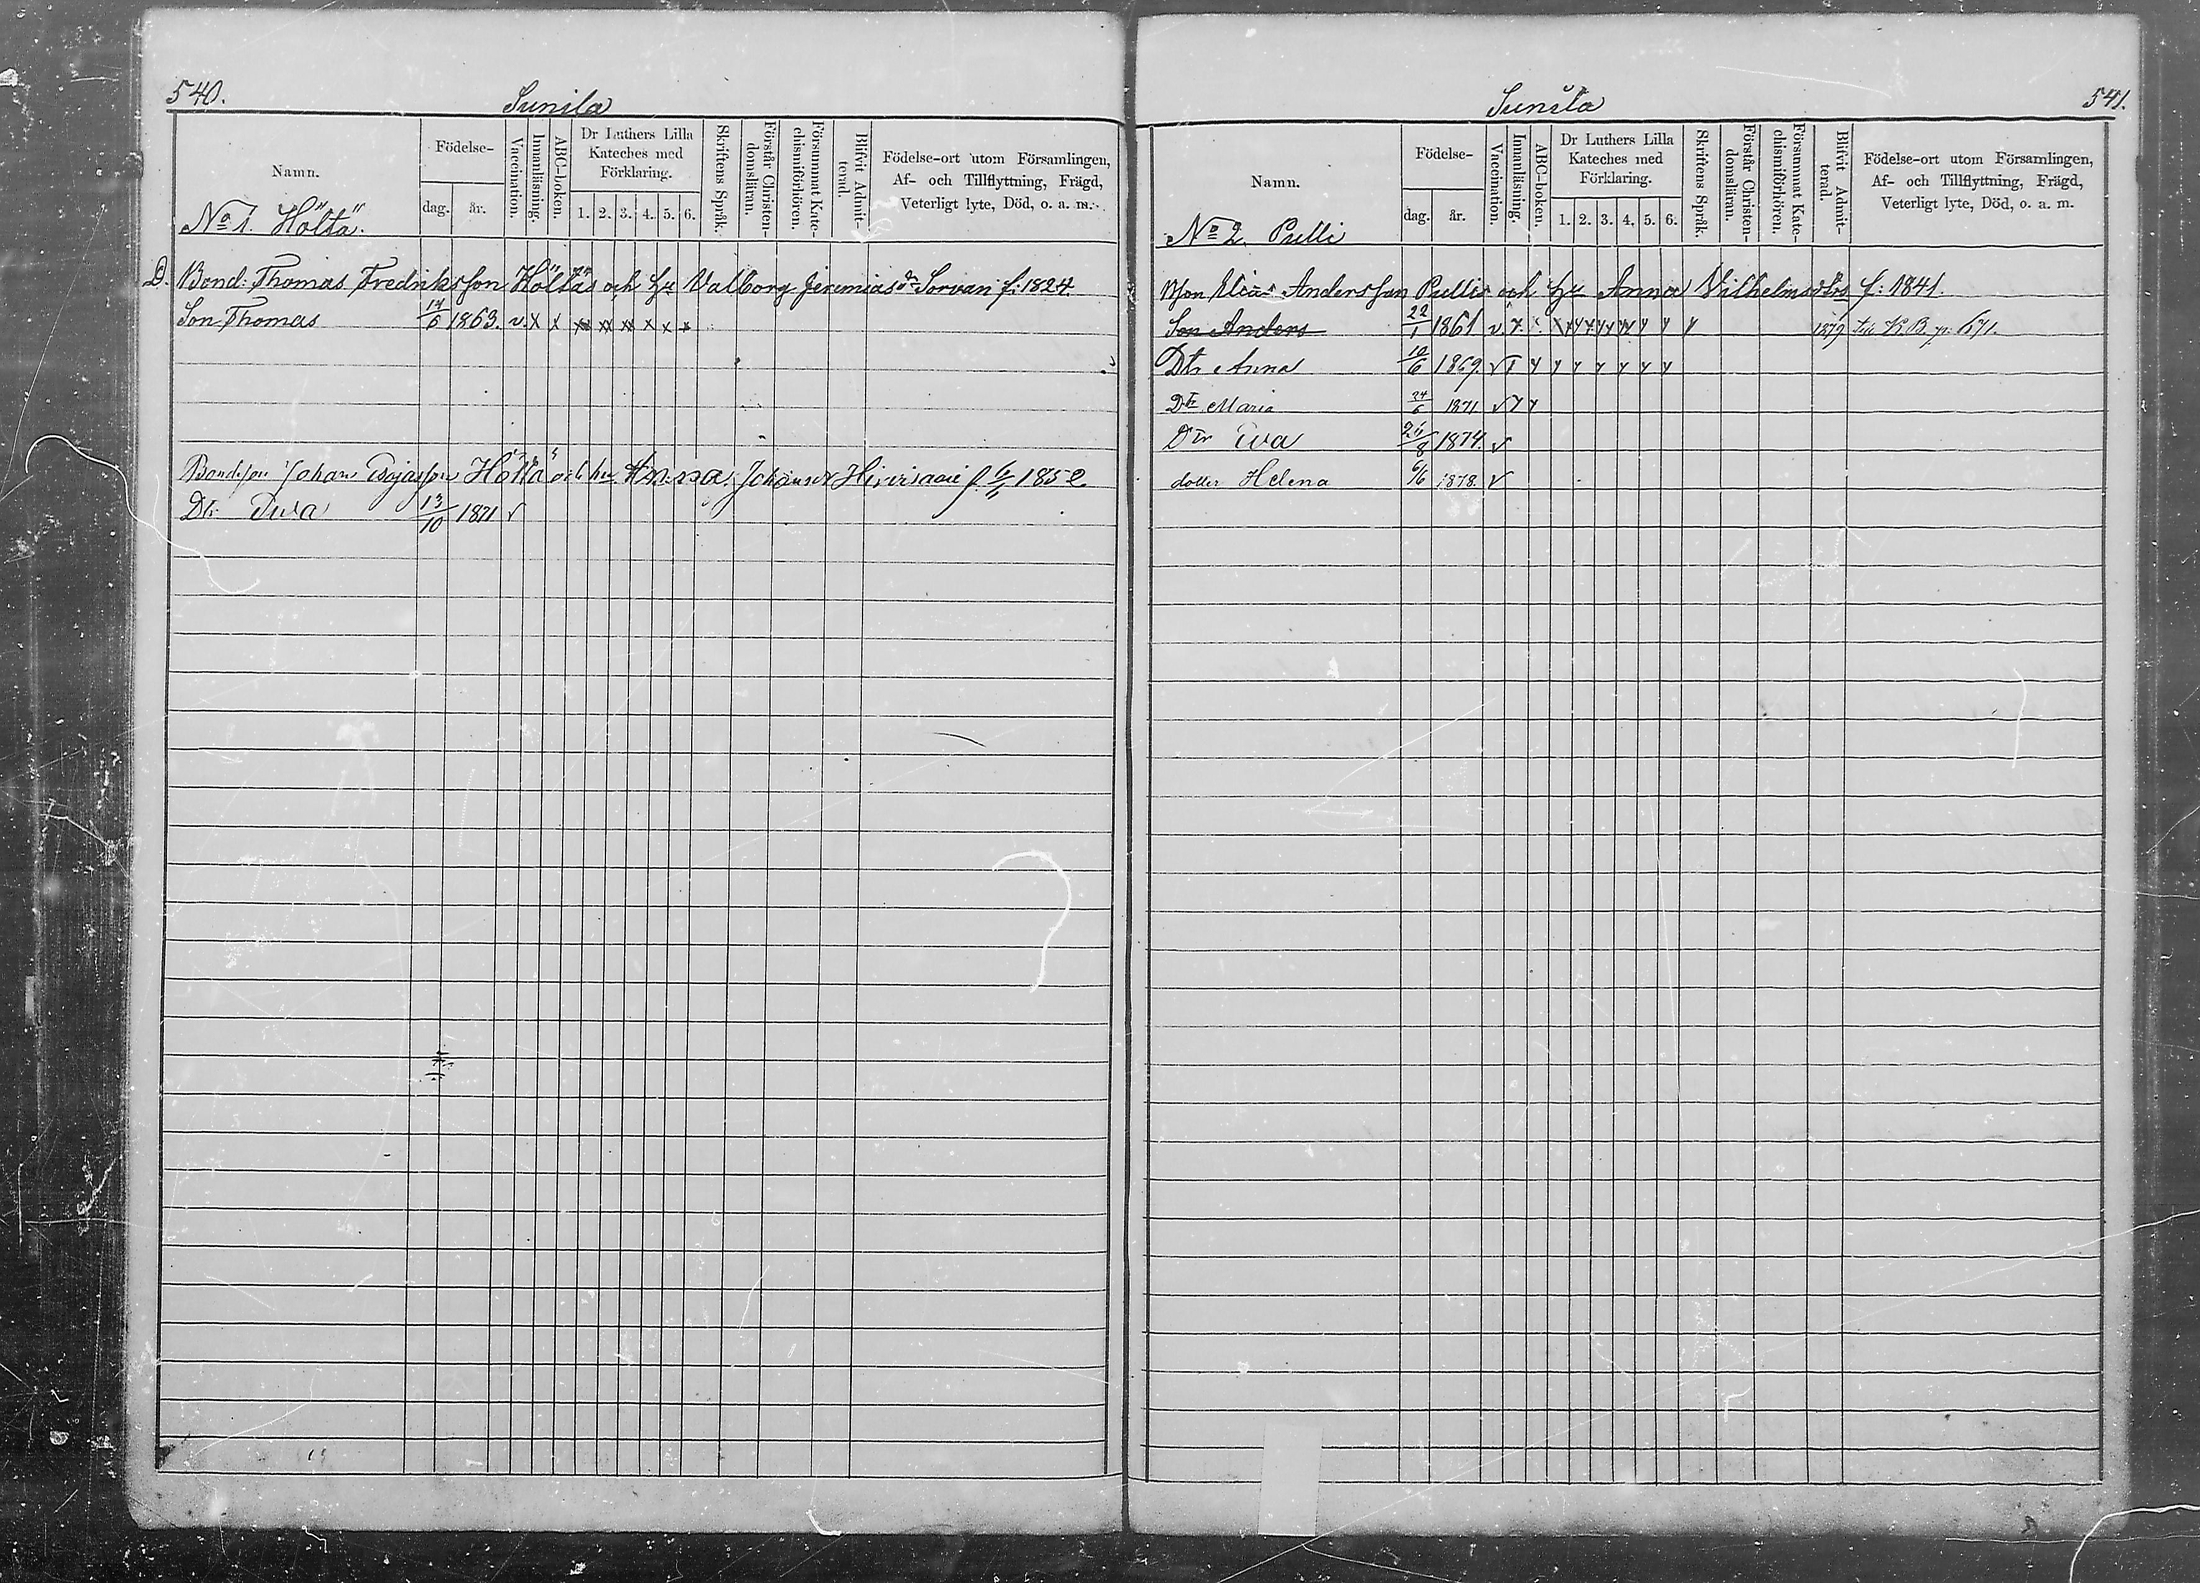 540.
Sunila
Namn.
Födelse-
dag.
år.
Vaccination.
Innanläsning.
ABC-boken.
Dr Luthers Lilla
Kateches med
Förklaring.
1. 2. 3. 4. 5. 6.
Skriftens Språk.
Förstår Christen-
domsläran.
Försummat Kate-
chismiförhören.
Blifvit Admit-
terad.
Födelse-ort utom Församlingen,
Af- och Tillflyttning, Frägd,
Veterligt lyte, Död, o. a. m.
No 1. Höltä.
D. Bond: Thomas Fredriksson Höltäs och hu Valborg Jeremiasdr Sorvari f: 1824.
Son Thomas 17/6 1863. v. x x x x x x x x
Bondeson Johan Esajasson Höltä och hu Anna Johansdr f 1852
Dtr Eva 13/10 1871 v
541.
Sunila
Namn.
Födelse-
dag.
år.
Vaccination.
Innanläsning.
ABC-boken.
Dr Luthers Lilla
Kateches med
Förklaring.
1. 2. 3. 4. 5. 6.
Skriftens Språk.
Förstår Christen-
domsläran.
Försummat Kate-
chismiförhören.
Blifvit Admit-
terad.
Födelse-ort utom Församlingen,
Af- och Tillflyttning, Frägd,
Veterligt lyte, Död, o. a. m.
No 2 Pulli
Elias Andersson Pullis och hu Anna Vilhelmsdtr f: 1841.
Son Anders 22/1 1861 v. 1879 K. B. p: 671.
Dtr Anna 10/6 1869. v
Dtr Maria 24/6 1871 v
Dtr Eva 1874. v
dotter Helena 6/6 1878. v